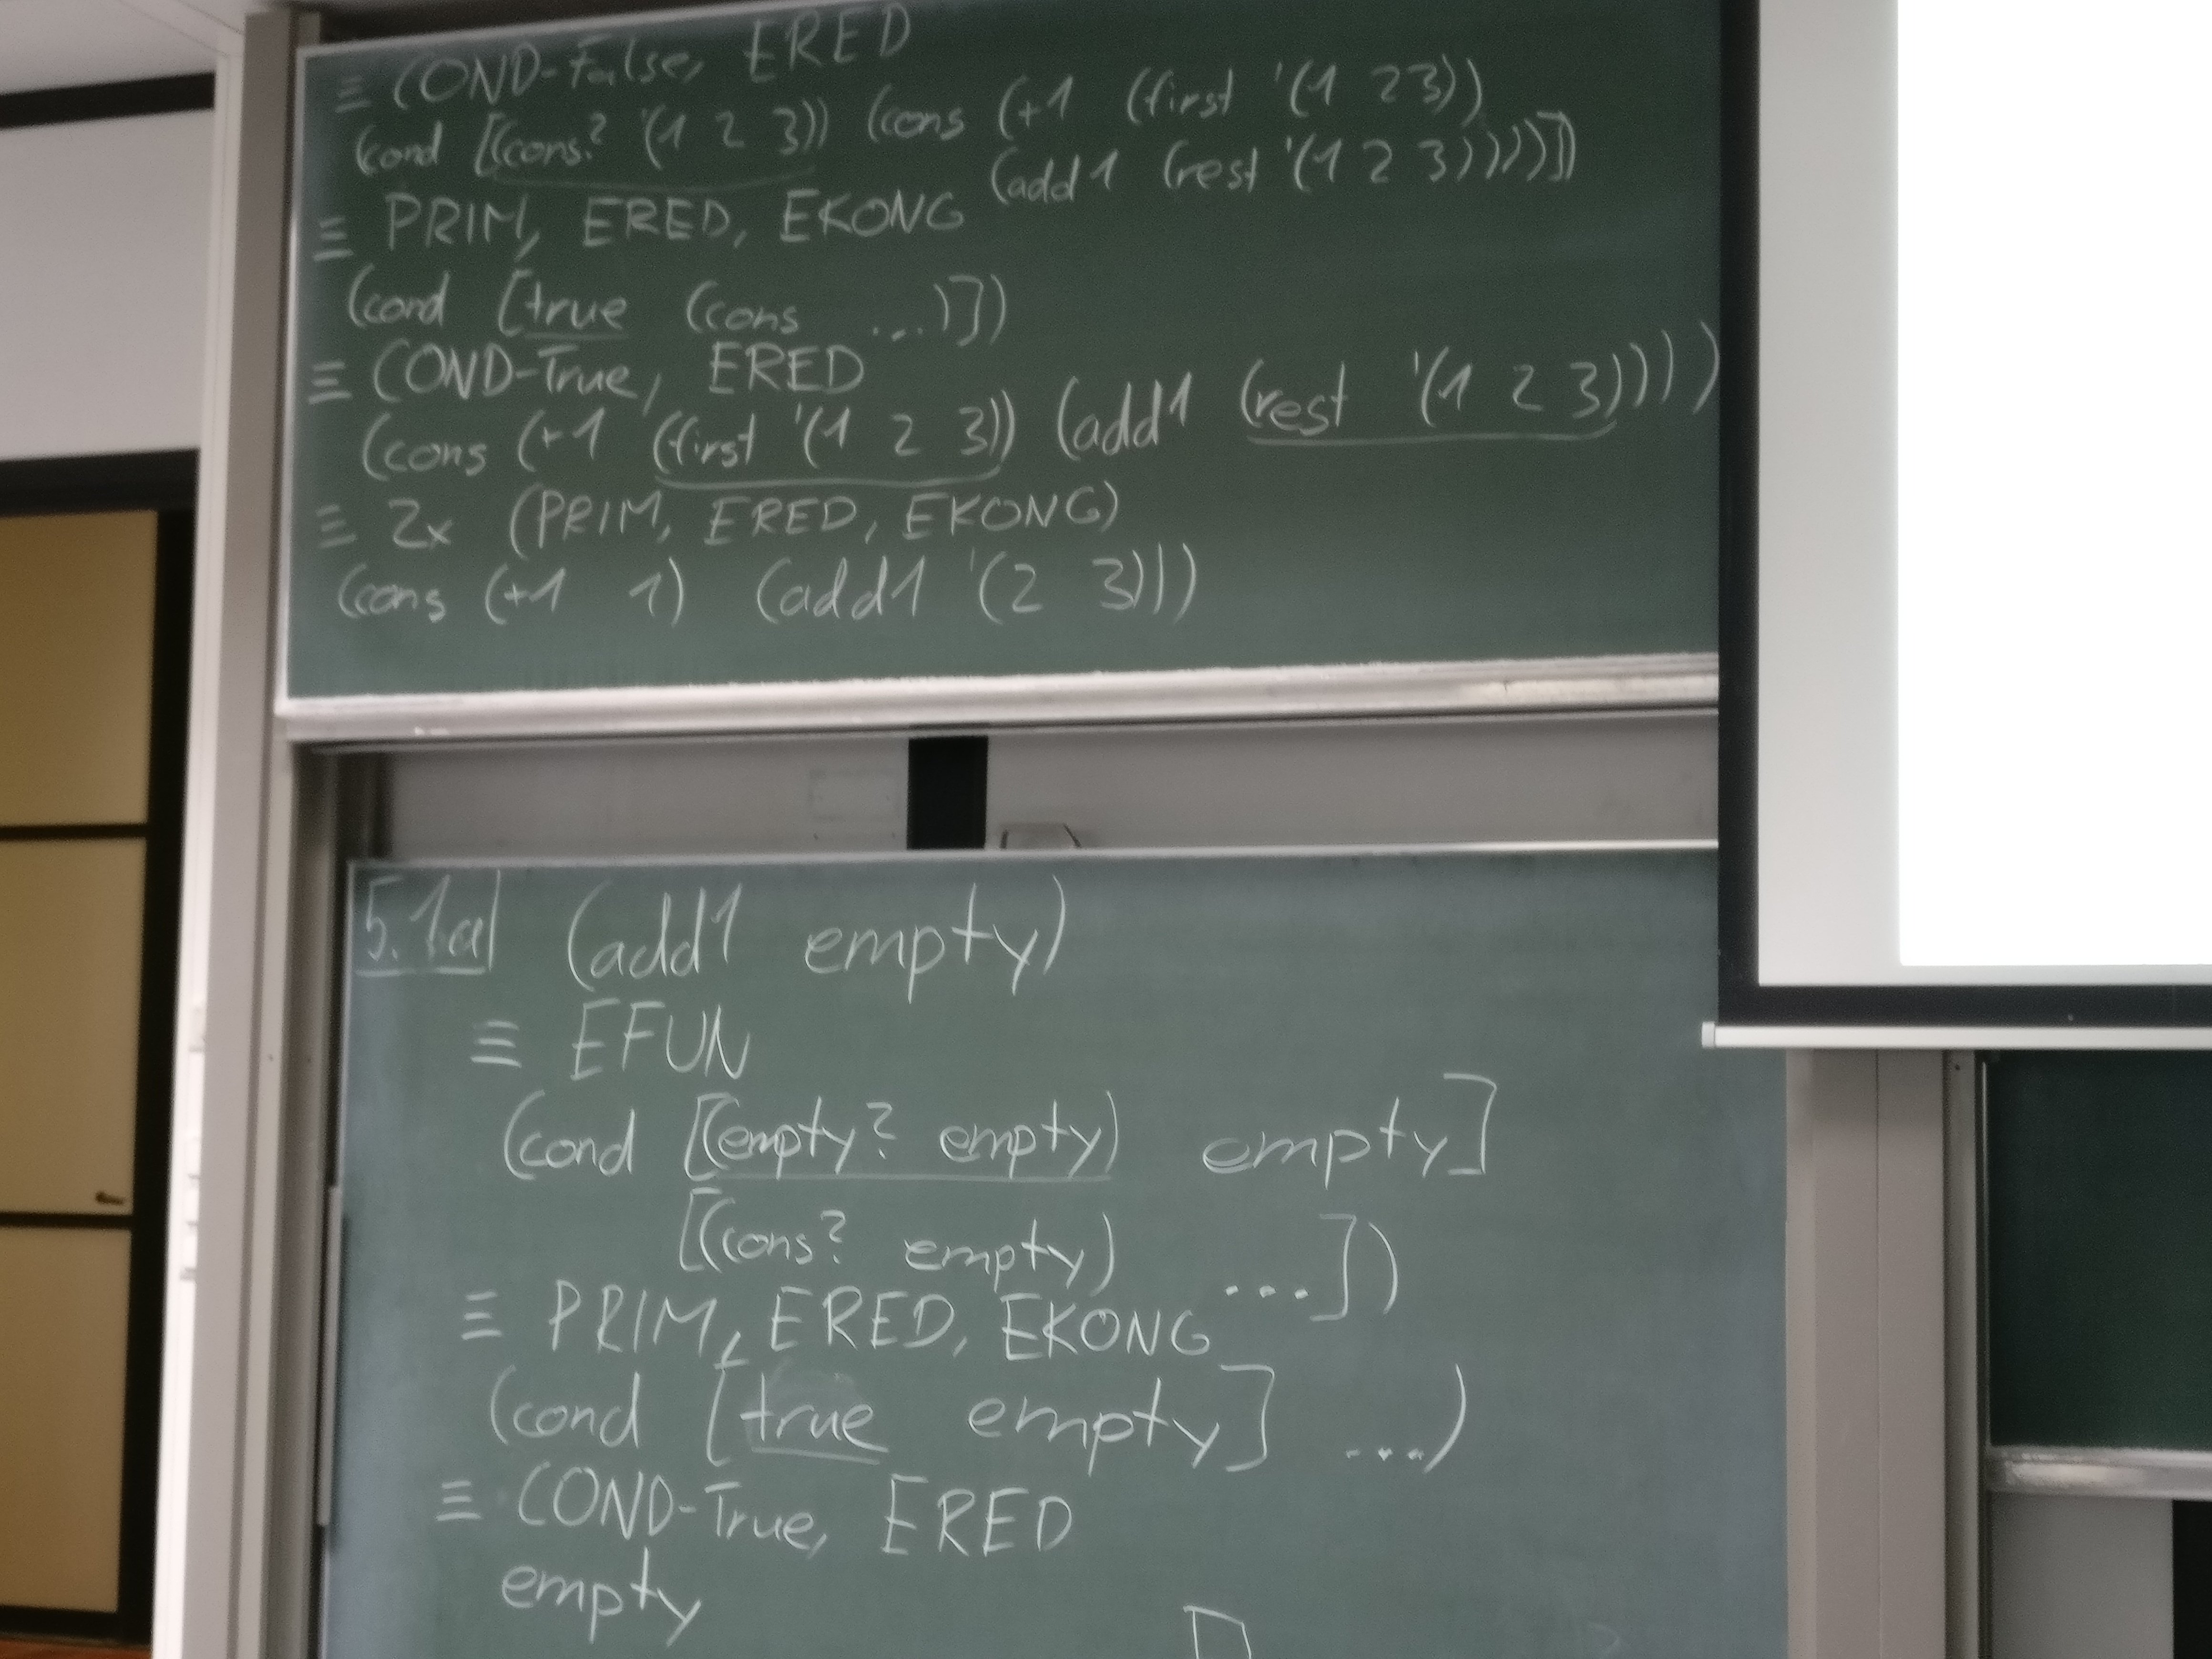 ≡ COND-False, ERED
(cond [(cons? '(1 2 3)) (cons (+1 (first '(1 2 3))
(add1 (rest '(1 2 3)))))])
≡ PRIM, ERED, EKONG
(cond [true (cons ...)])
≡ COND-True, ERED
(cons (+1 (first '(1 2 3)) (add1 (rest '(1 2 3))))
≡ 2x (PRIM, ERED, EKONG)
(cons (+1 1) (add1 '(2 3)))
5.1a) (add1 empty)
≡ EFUN
(cond [(empty? empty) empty]
[(cons? empty) ...])
≡ PRIM, ERED, EKONG
(cond [true empty] ...)
≡ COND-True, ERED
empty